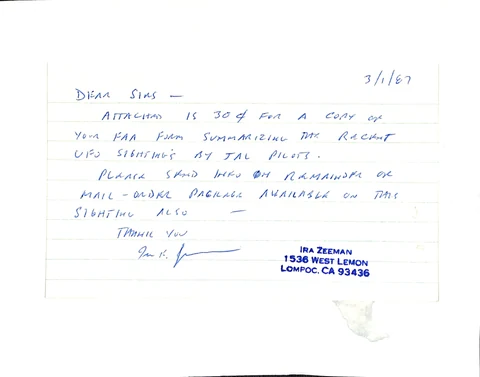 3/1/87
DEAR SIRS —
ATTACHED IS 30¢ FOR A COPY OF
YOUR FAA FORM SUMMARIZING THE RECENT
UFO SIGHTING'S BY JAL PILOTS.
PLEASE SEND INFO ON REMAINDER OF
MAIL-ORDER PACKAGE AVAILABLE ON THIS
SIGHTING ALSO —
THANK YOU
IRA ZEEMAN
1536 WEST LEMON
LOMPOC, CA 93436